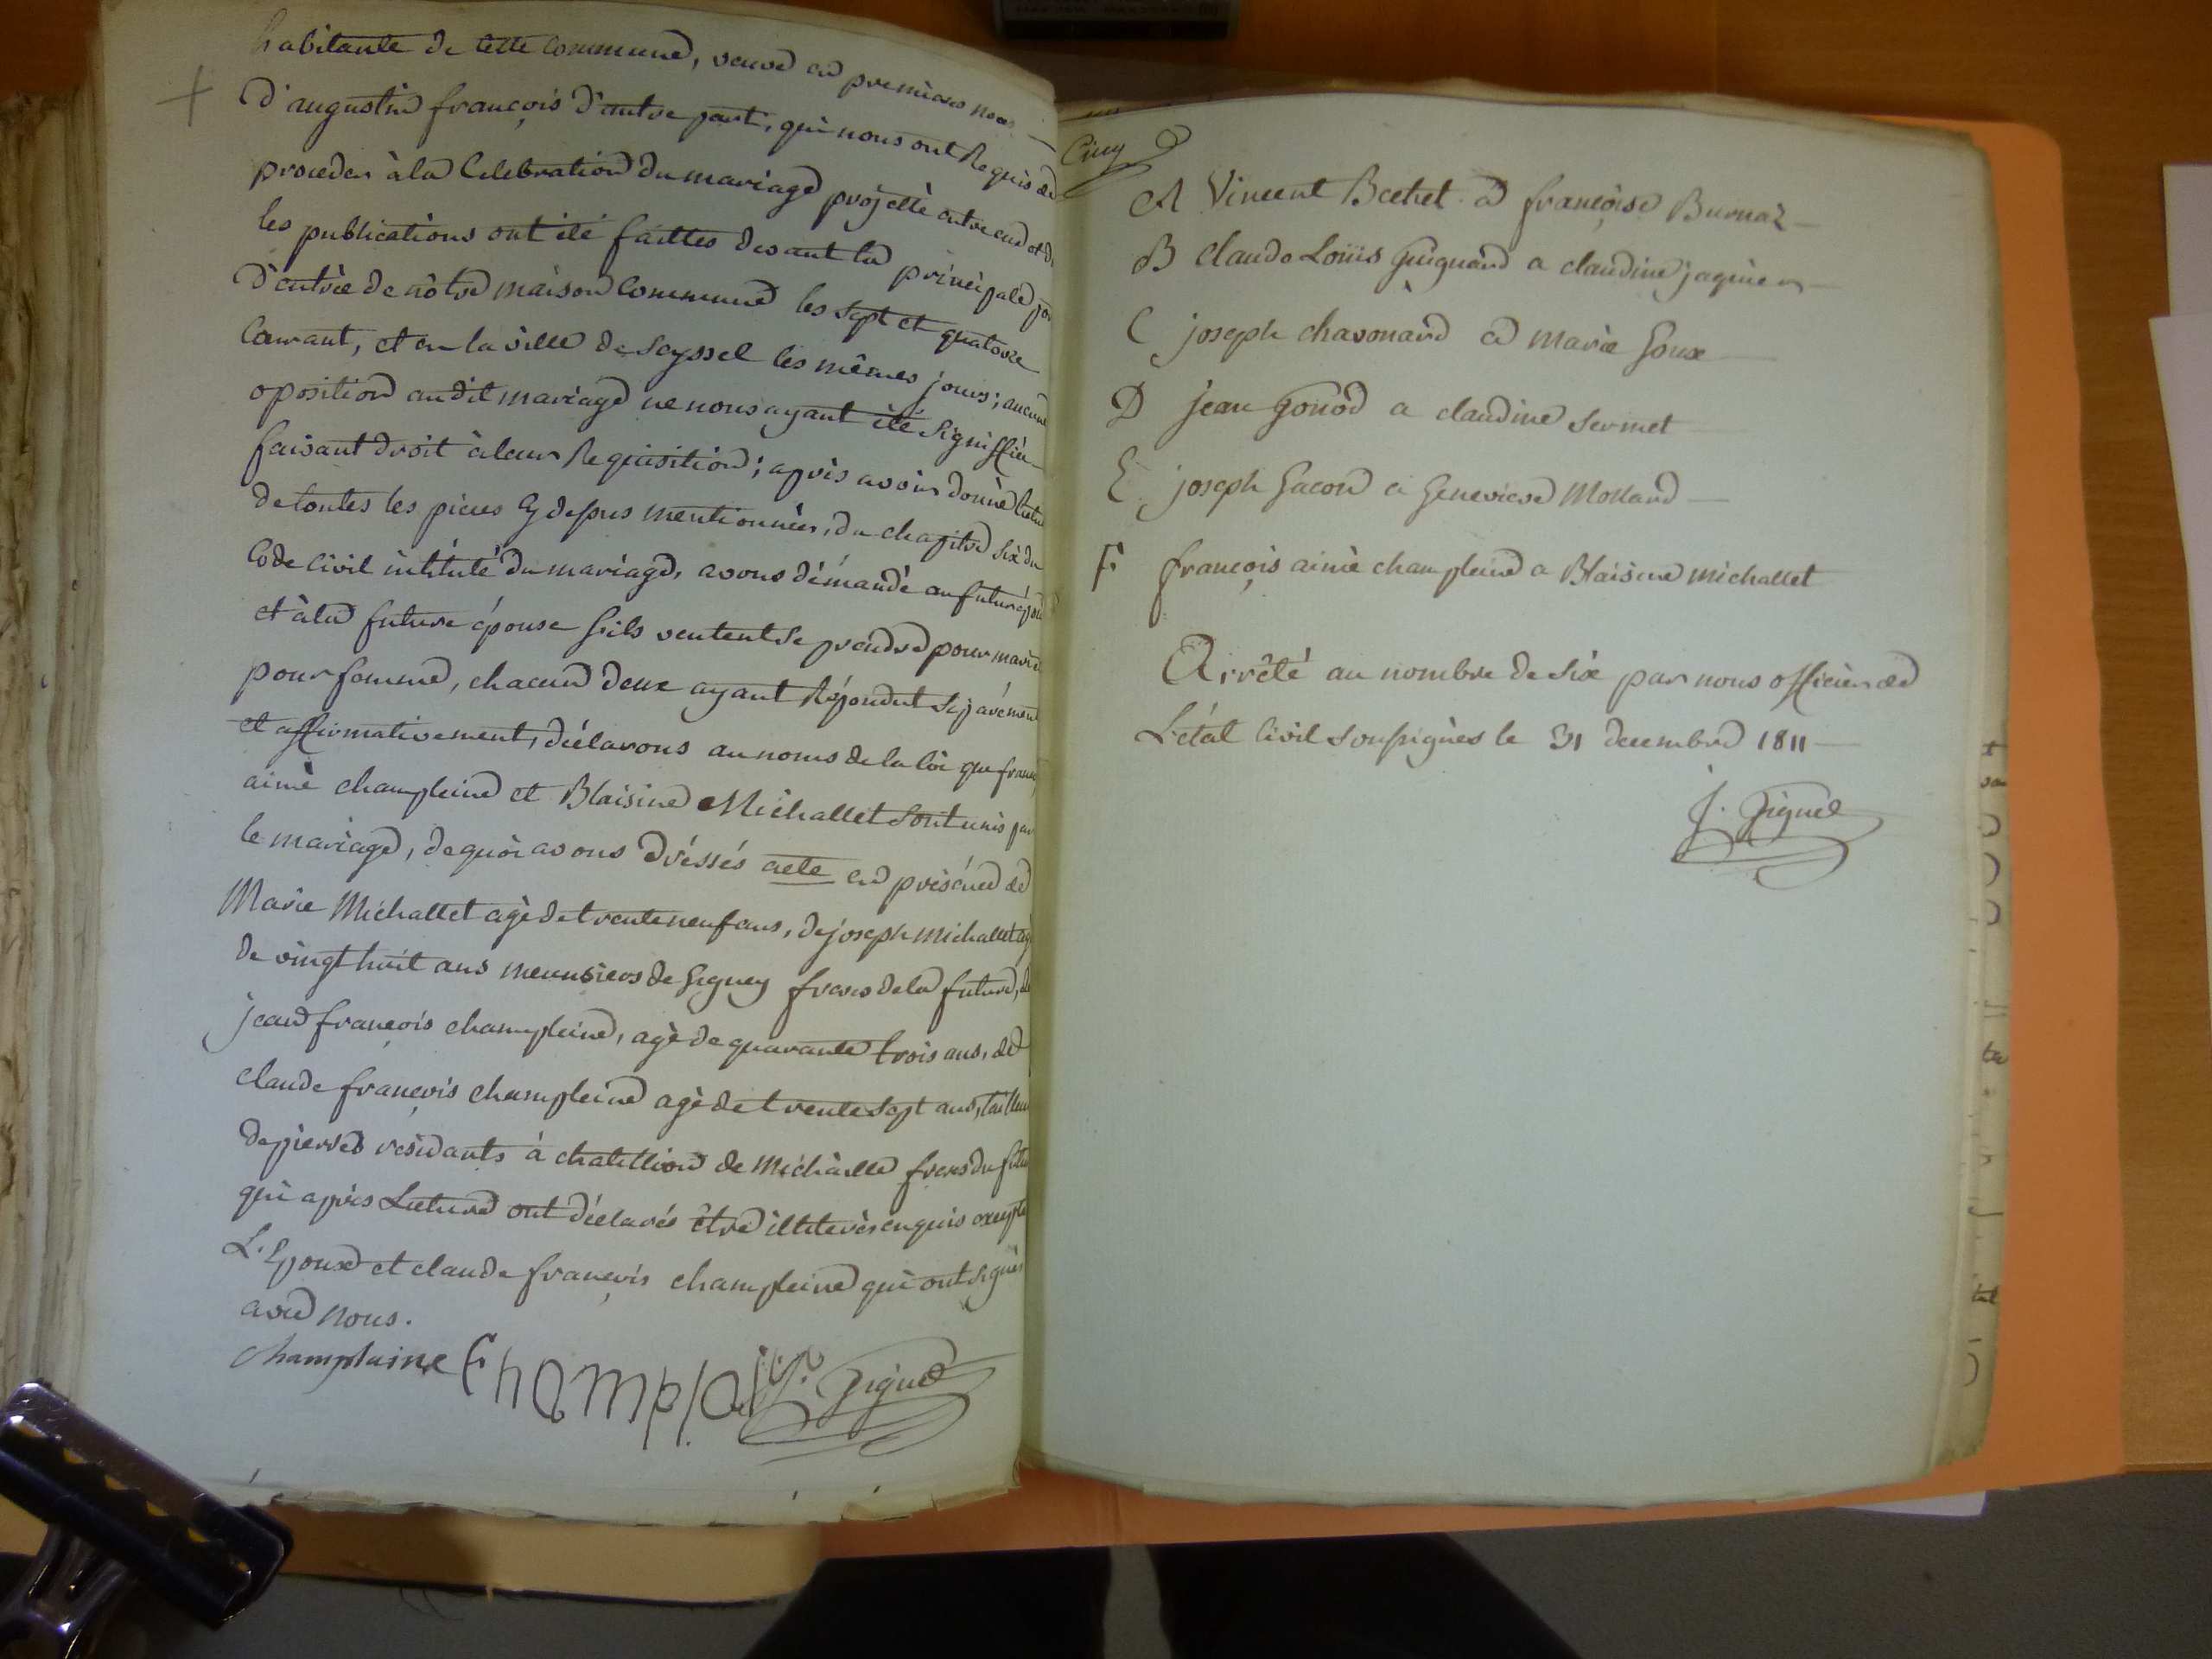 habitante de cette commune, veuve en premieres noces
d'augustin françois d'autre part, qui nous ont Requis de
proceder à la Celebration du mariage projetté entre eux et d
les publications ont été faittes devant la principale por
d'entrée de nôtre maison Commune les sept et quatorze
Courant, et en la ville de Seyssel les mêmes jours; aucune
oposition audit mariage ne nous ayant été signiffiée
faisant droit à leur Requisition; après avoir donné lectu
de toutes les pieces Cy dessus mentionnées, du chapitre six du
Code Civil intitulé du mariage, avons démandé au futur épou
et à la future épouse s'ils veulent se prendre pour mari et
pour femme, chacun deux ayant Répondut séparément
et affirmativement, déclarons au noms de la loi que franç
aimé champleine et Blaisine Michallet sont unis par
le mariage, de quoi avons dréssés acte en préséence de
Marie Michallet agé de trente neuf ans, de joseph michallet agé
de vingt huit ans meunsiers de Gigney freres de la future, de
jean françois champleine, agé de quarante trois ans, de
claude françois champleine agé de trente sept ans, tailleur
de pierres residants à chatillion de Michaille freres du futu
qui après Lecture ont déclarés être illiterés enquis exepté
L'Epoux et claude françois champleine qui ont signés
avec nous.
Champlaine Champlai J. Pignet
Cinq
A Vincent Bechet a françoise Burnaz
B Claude Loüis Guignard a claudine jaquier
C joseph chavonard a marie Goux
D jean gonod a claudine Sermet
E joseph Gacon a Genevieve Mollard
F françois aimé champleine a Blaisine michallet
Arrêté au nombre de six par nous officier de
L'état Civil soussignés le 31 decembre 1811
J. Pignet